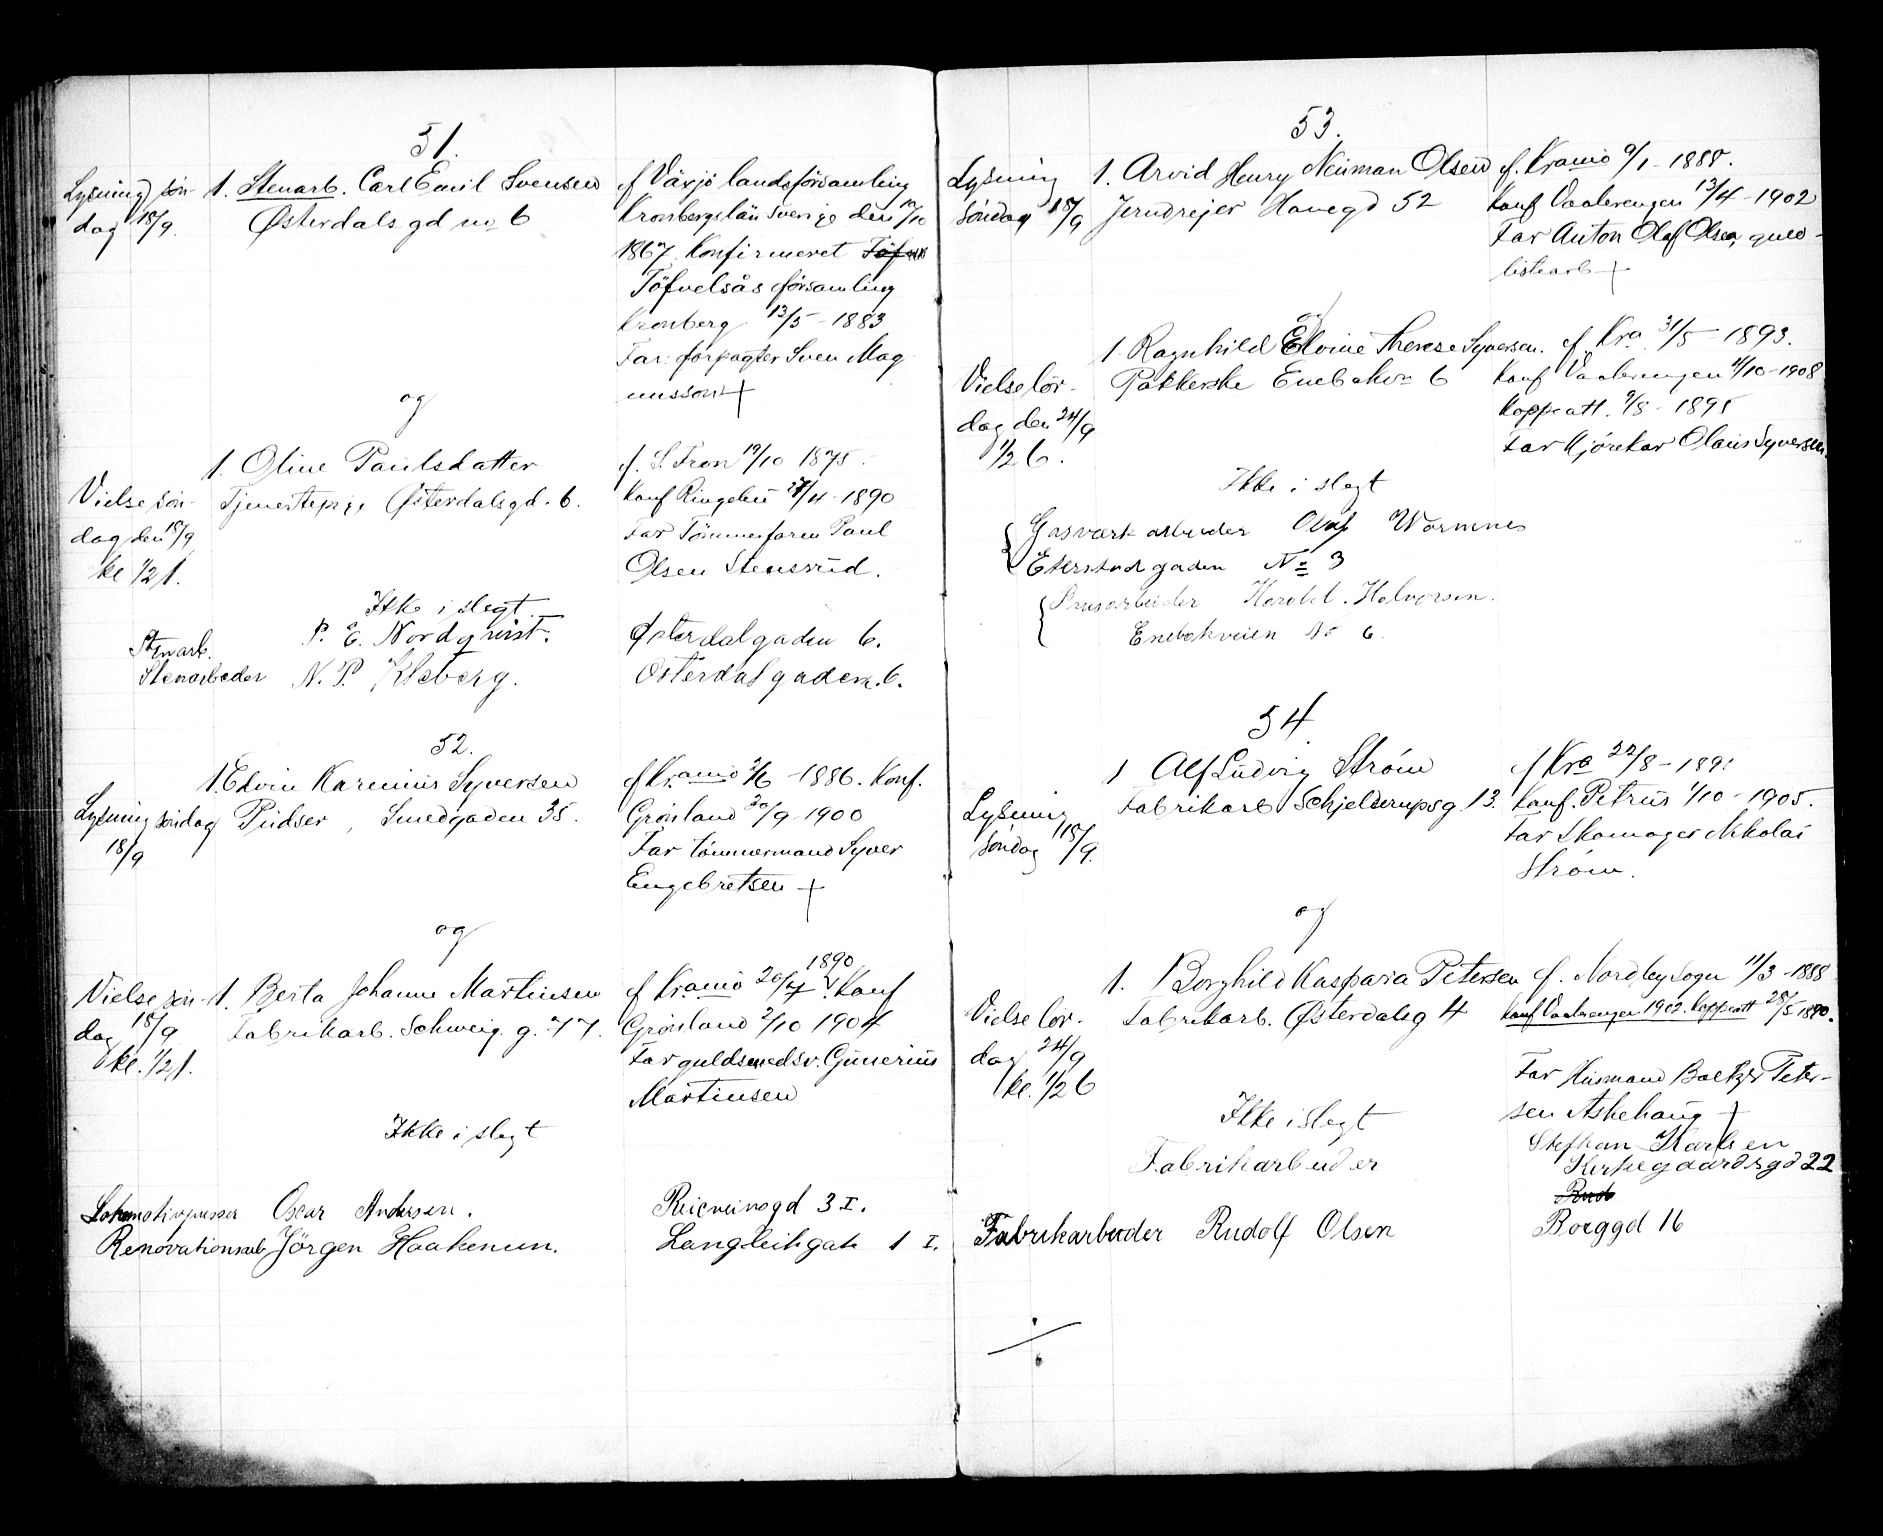 51.
Lysning søn- 1. Stenarb. Carl Emil Svensen f Växjö landsförsamling
dag 18/9. Østerdals gd no 6 Kronbergslän Sverige den /10
1867. Konfirmeret
Töfvelsås församling
Kronberg 13/5 - 1883
Far: forpagter Sven Mag
nusson +
og
1. Oline Paulsdatter f. S. Fron 19/10 1875.
Vielse søn- Tjenestepige Østerdalsgd. 6. Konf Ringebu /4 - 1890
dag den 18/9 Far Tømmerfører Paul
kl 1/2 1. Olsen Stensrud.
Ikke i slegt.
Stenarb. P. E. Nordqvist. Østerdalgaden 6.
Stenarbeder N. P. Kleberg. Østerdalgaden. 6.
52.
1. Edvin Karenius Syversen f Kr.ania /6 - 1886. Konf.
Lysning søndag Pudser, Smedgaden 35. Grønland 30/9 - 1900
18/9 Far tømmermand Syver
Engebretsen +
og
Vielse søn- 1. Berta Johanne Martinsen f Kr.ania 20/4 1890. Konf
dag 18/9 Fabrikarb. Schweig. g. 77. Grønland 2/10 1904
kl. 1/2 1. Far guldsmedsv. Gunerius
Martinsen
Ikke i slegt
Lokomotivpusser Oscar Andersen. 3 I.
Renovationsarb. Jörgen Haakensen. Langleikgate 1 I.
53.
Lysning 1. Arvid Henry Neuman Olsen f. Krania 9/1 - 1888.
Søndag 18/9 Jerndrejer Havegd 52 Konf Vaalerengen 13/4 - 1902
Far Anton Olaf Olsen, guld-
listearb +
og
1. Ragnhild Elvine Therese Syversen. f Kra 31/5 - 1893.
Vielse lør- Pakkerske Enebakv 6 Konf Vaalerengen 4/10 - 1908
dag den 24/9 Koppeatt. 9/8 - 1895
1/2 6. Far Kjørekar Olaus Syversen.
Ikke i slegt
Gasværk arbeider Olaf Wormnes
Etterstadgaden No 3
Harald. Halvorsen.
Enebakveien No 6
54
1 Alf Ludvig Strøm f Kra 22/8 - 189
Lysning Fabrikarb Schjelderupsg 13. Konf. Petrus 1/10 - 1905.
Søndag 18/9. Far Skomager Nikolai
Strøm.
og
1. Borghild Kaspara Petersen f. Nordby Sogn 11/3 - 1888
Vielse lør- Fabrikarb. Østerdalsg 4 Konf Vaalerengen 1902. Koppeatt 28/5 1890.
dag 24/9
kl. 1/2 6 Far Husmand Baltzer Peter-
sen Askehaug +
Ikke i slegt
Fabrikarbeider Stefhan Karlsen
Kirkegaardsgd 22
Fabrikarbeider Rudolf Olsen Borggd 16